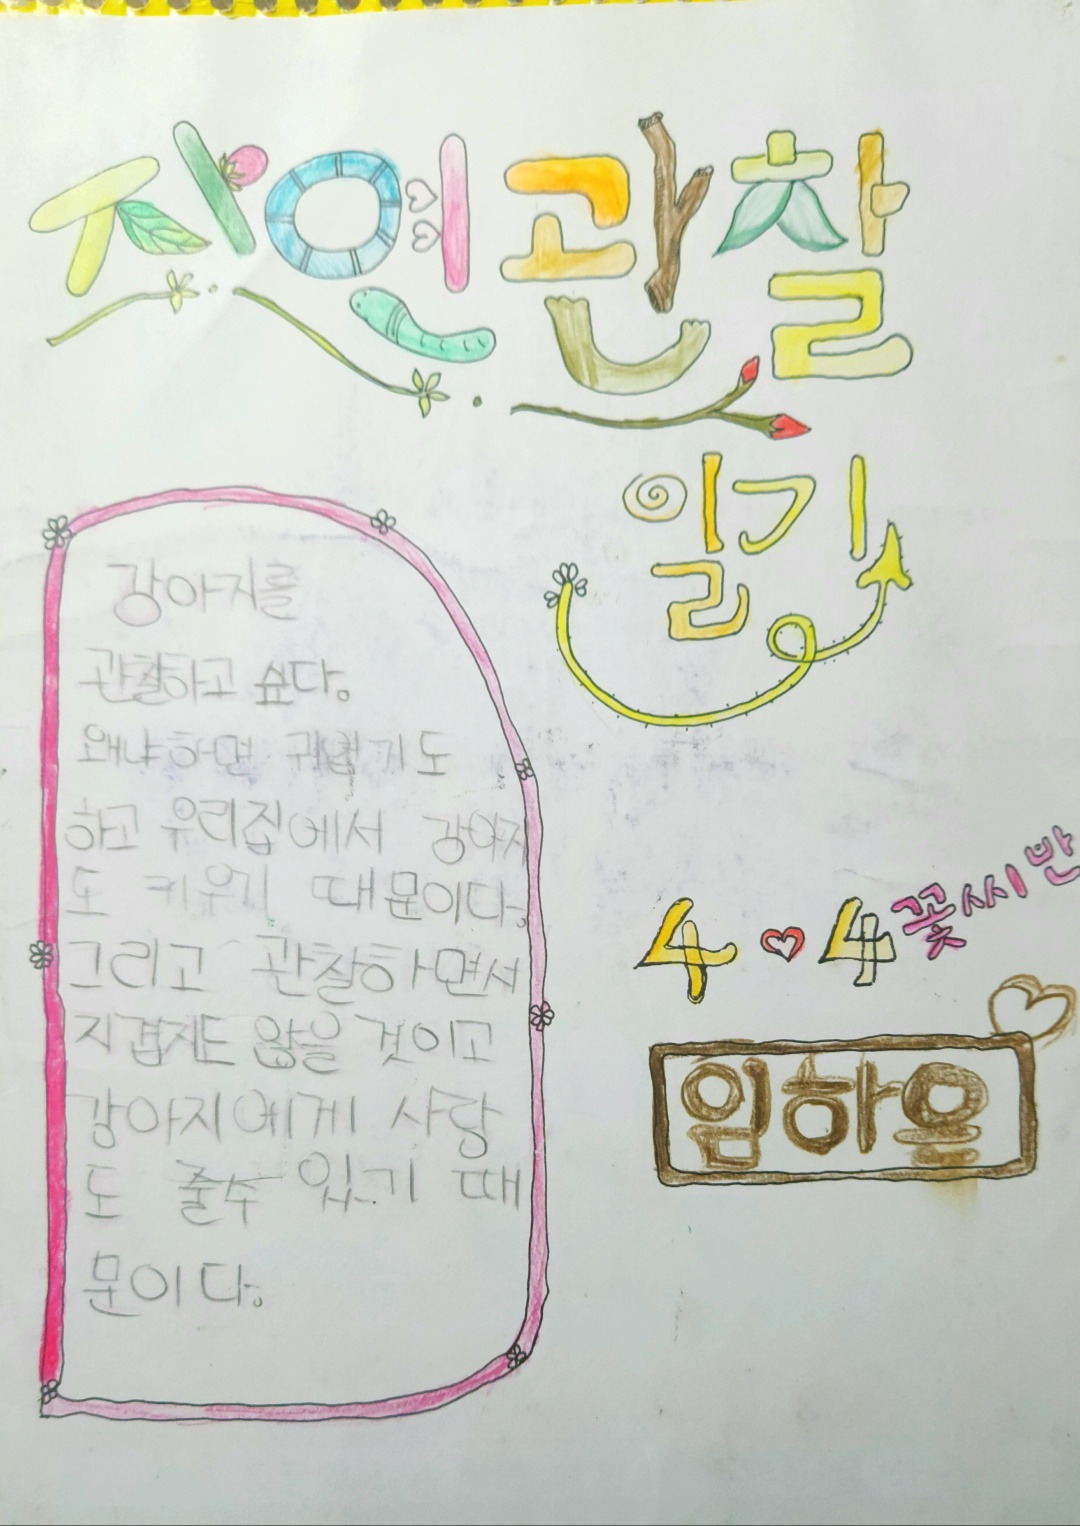 자연관찰
일기
강아지를
관찰하고 싶다.
왜냐하면 귀엽기도
하고 우리집에서 강아지
도 키우기 때문이다.
그리고 관찰하면서
지겹지도 않을 것이고
강아지에게 사랑
도 줄수 있기 때
문이다.
4♥4 꽃씨반
임하을